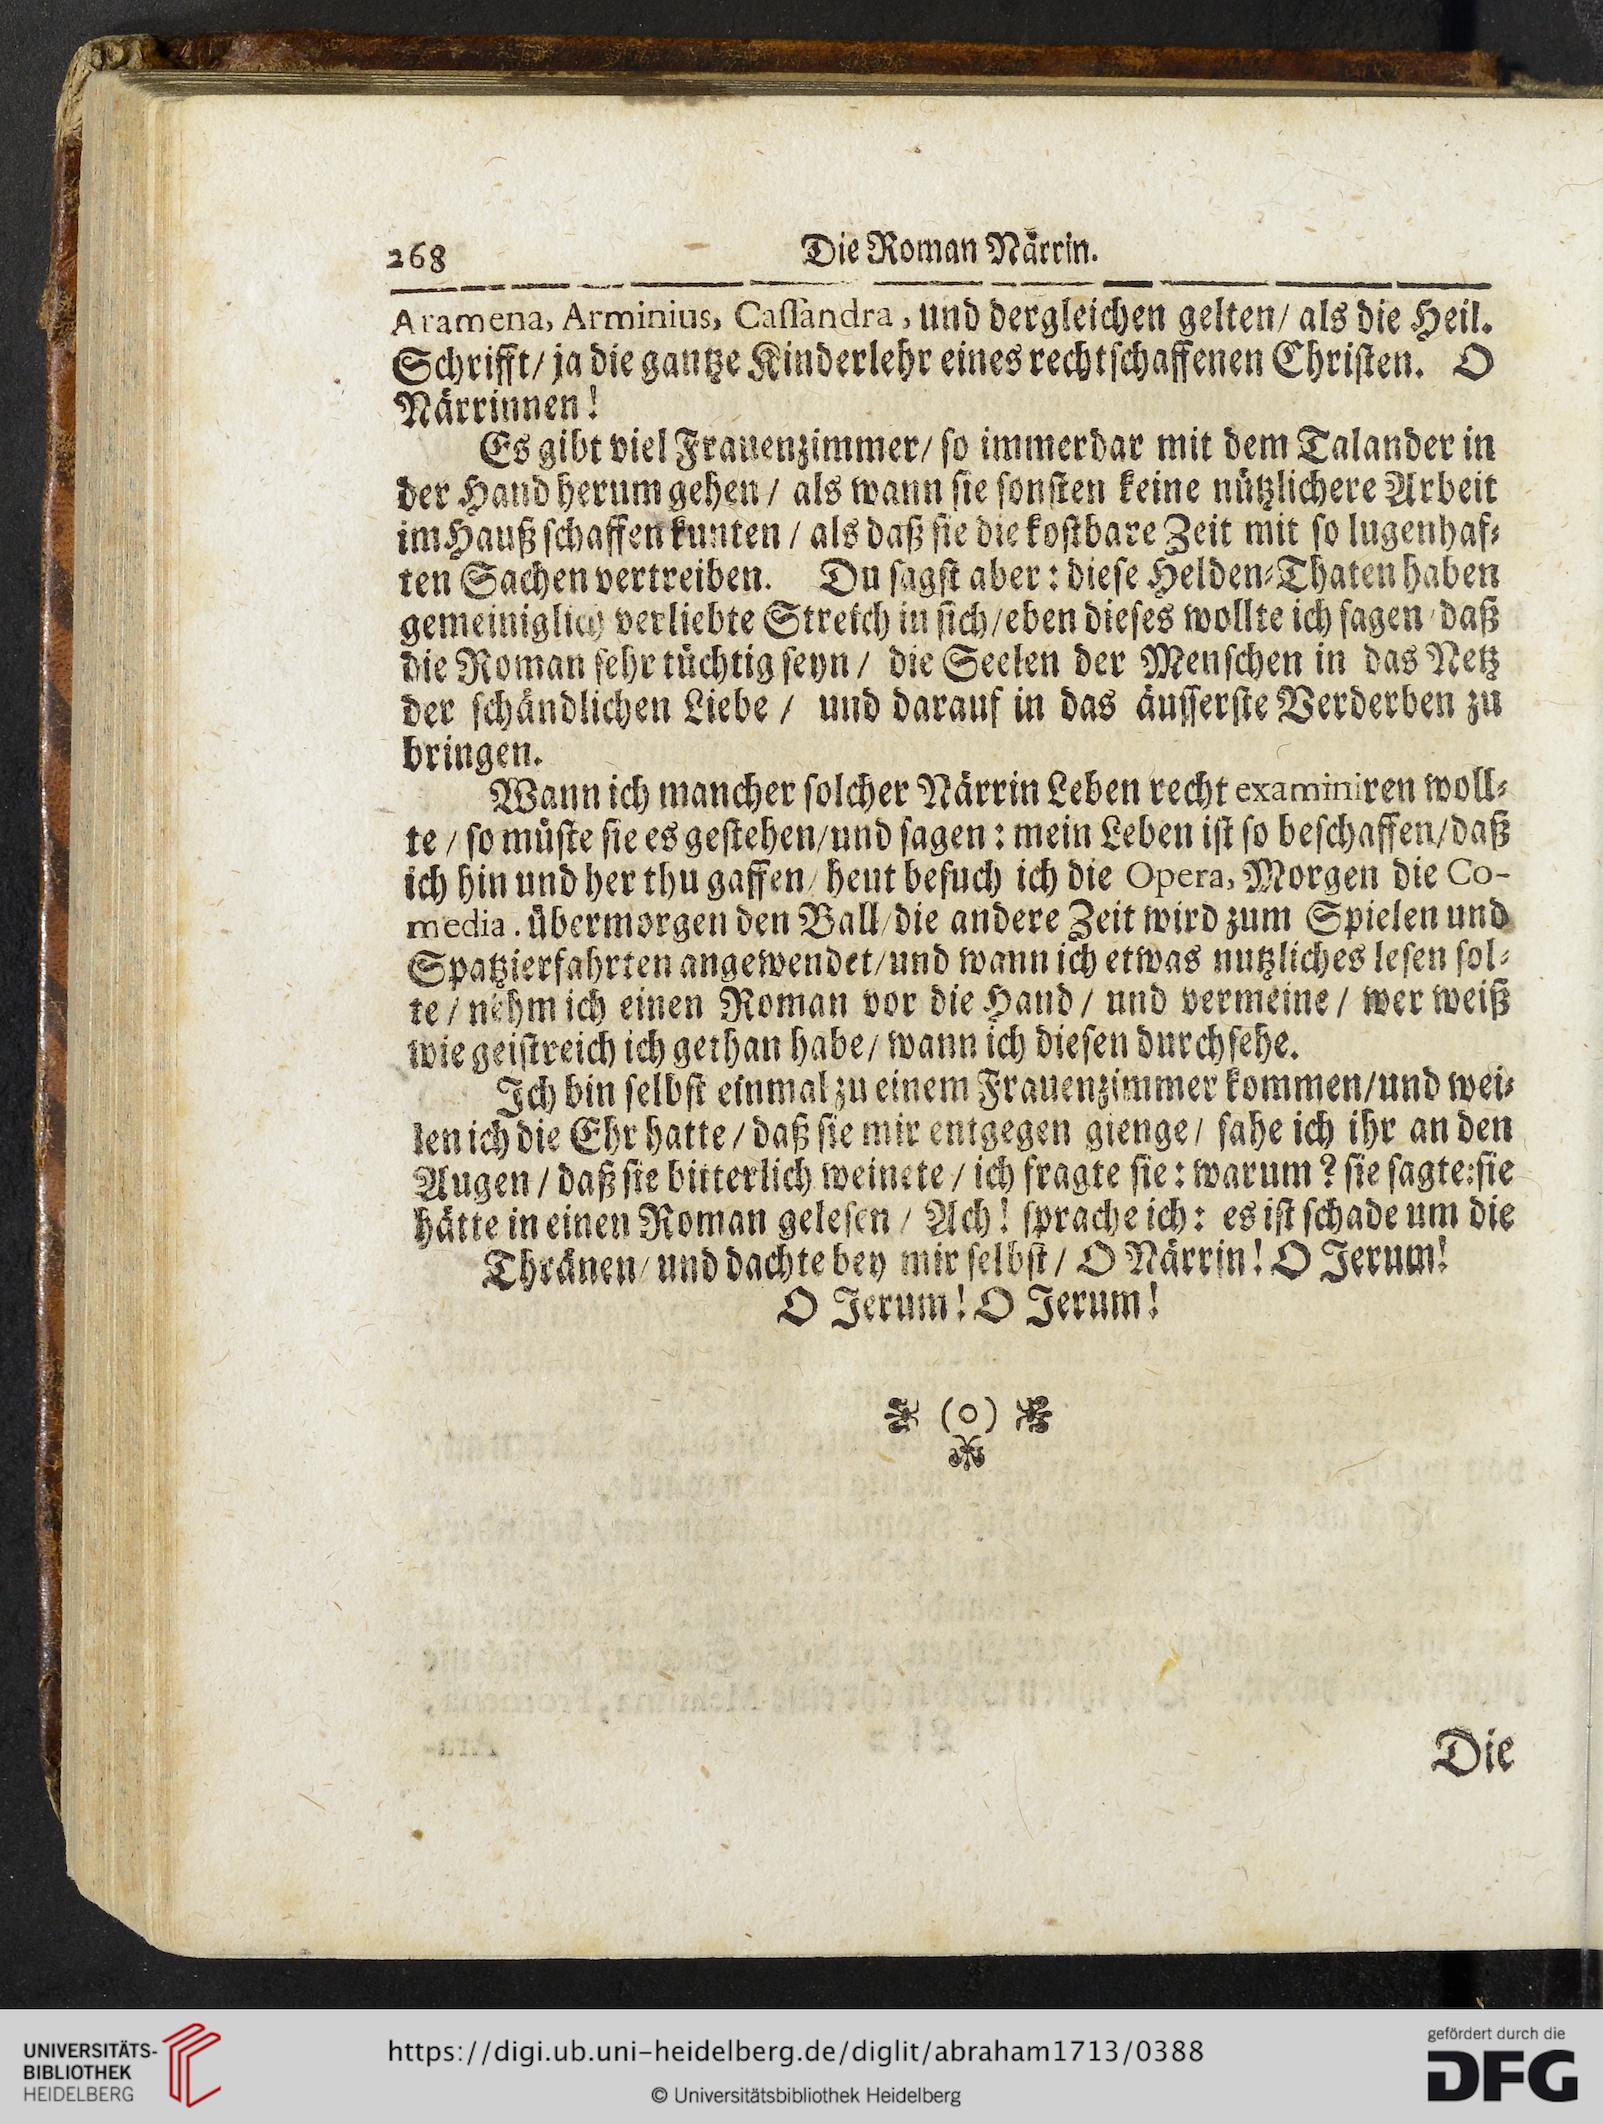 268 Die Roman Närrin.
Aramena, Arminius, Caſſandra, und dergleichen gelten/ als die Heil.
Schrifft/ ja die gantze Kinderlehr eines rechtſchaffenen Chriſten. O
Närrinnen!
Es gibt viel Frauenzimmer/ ſo immerdar mit dem Talander in
der Hand herum gehen/ als wann ſie ſonſten keine nützlichere Arbeit
im Hauß ſchaffen kunten/ als daß ſie die koſtbare Zeit mit ſo lugenhaf⸗
ten Sachen vertreiben. Du ſagſt aber: dieſe Helden⸗Thaten haben
gemeiniglich verliebte Streich in ſich/ eben dieſes wollte ich ſagen/ daß
die Roman ſehr tüchtig ſeyn/ die Seelen der Menſchen in das Netz
der ſchändlichen Liebe/ und darauf in das äuſſerſte Verderben zu
bringen.
Wann ich mancher ſolcher Närrin Leben recht examiniren woll⸗
te/ ſo müſte ſie es geſtehen/ und ſagen: mein Leben iſt ſo beſchaffen/ daß
ich hin und her thu gaffen/ heut beſuch ich die Opera, Morgen die Co-
media. übermorgen den Ball/ die andere Zeit wird zum Spielen und
Spatzierfahrten angewendet/ und wann ich etwas nutzliches leſen ſol⸗
te/ nehm ich einen Roman vor die Hand/ und vermeine/ wer weiß
wie geiſtreich ich gethan habe/ wann ich dieſen durchſehe.
Ich bin ſelbſt einmal zu einem Frauenzimmer kommen/ und wei⸗
len ich die Ehr hatte/ daß ſie mir entgegen gienge/ ſahe ich ihr an den
Augen/ daß ſie bitterlich weinete/ ich fragte ſie: warum? ſie ſagte: ſie
hätte in einen Roman geleſen/ Ach! ſprache ich: es iſt ſchade um die
Thränen/ und dachte bey mir ſelbſt/ O Närrin! O Jerum!
O Jerum! O Jerum!
(o)
Die
UNIVERSITÄTS-
BIBLIOTHEK
HEIDELBERG
https://digi.ub.uni-heidelberg.de/diglit/abraham1713/0388
© Universitätsbibliothek Heidelberg
gefördert durch die
DFG